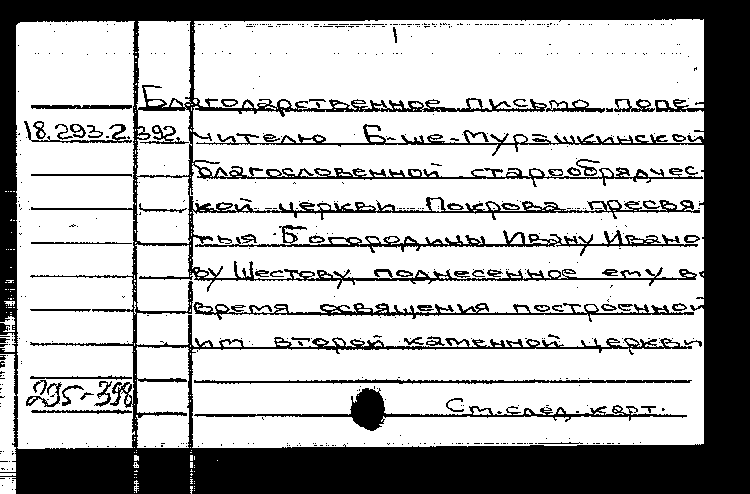 1
Благодарственное письмо попе-
18.293.2.392. чителю Б-ше-Мурашкинской
благословенной старообрядчес-
кой церкви Покрова пресвя-
тыя Богородицы Ивану Ивано-
ву Шестову, поднесенное ему во
время освящения построенной
им второй каменной церкви
295-398
См. след. карт.